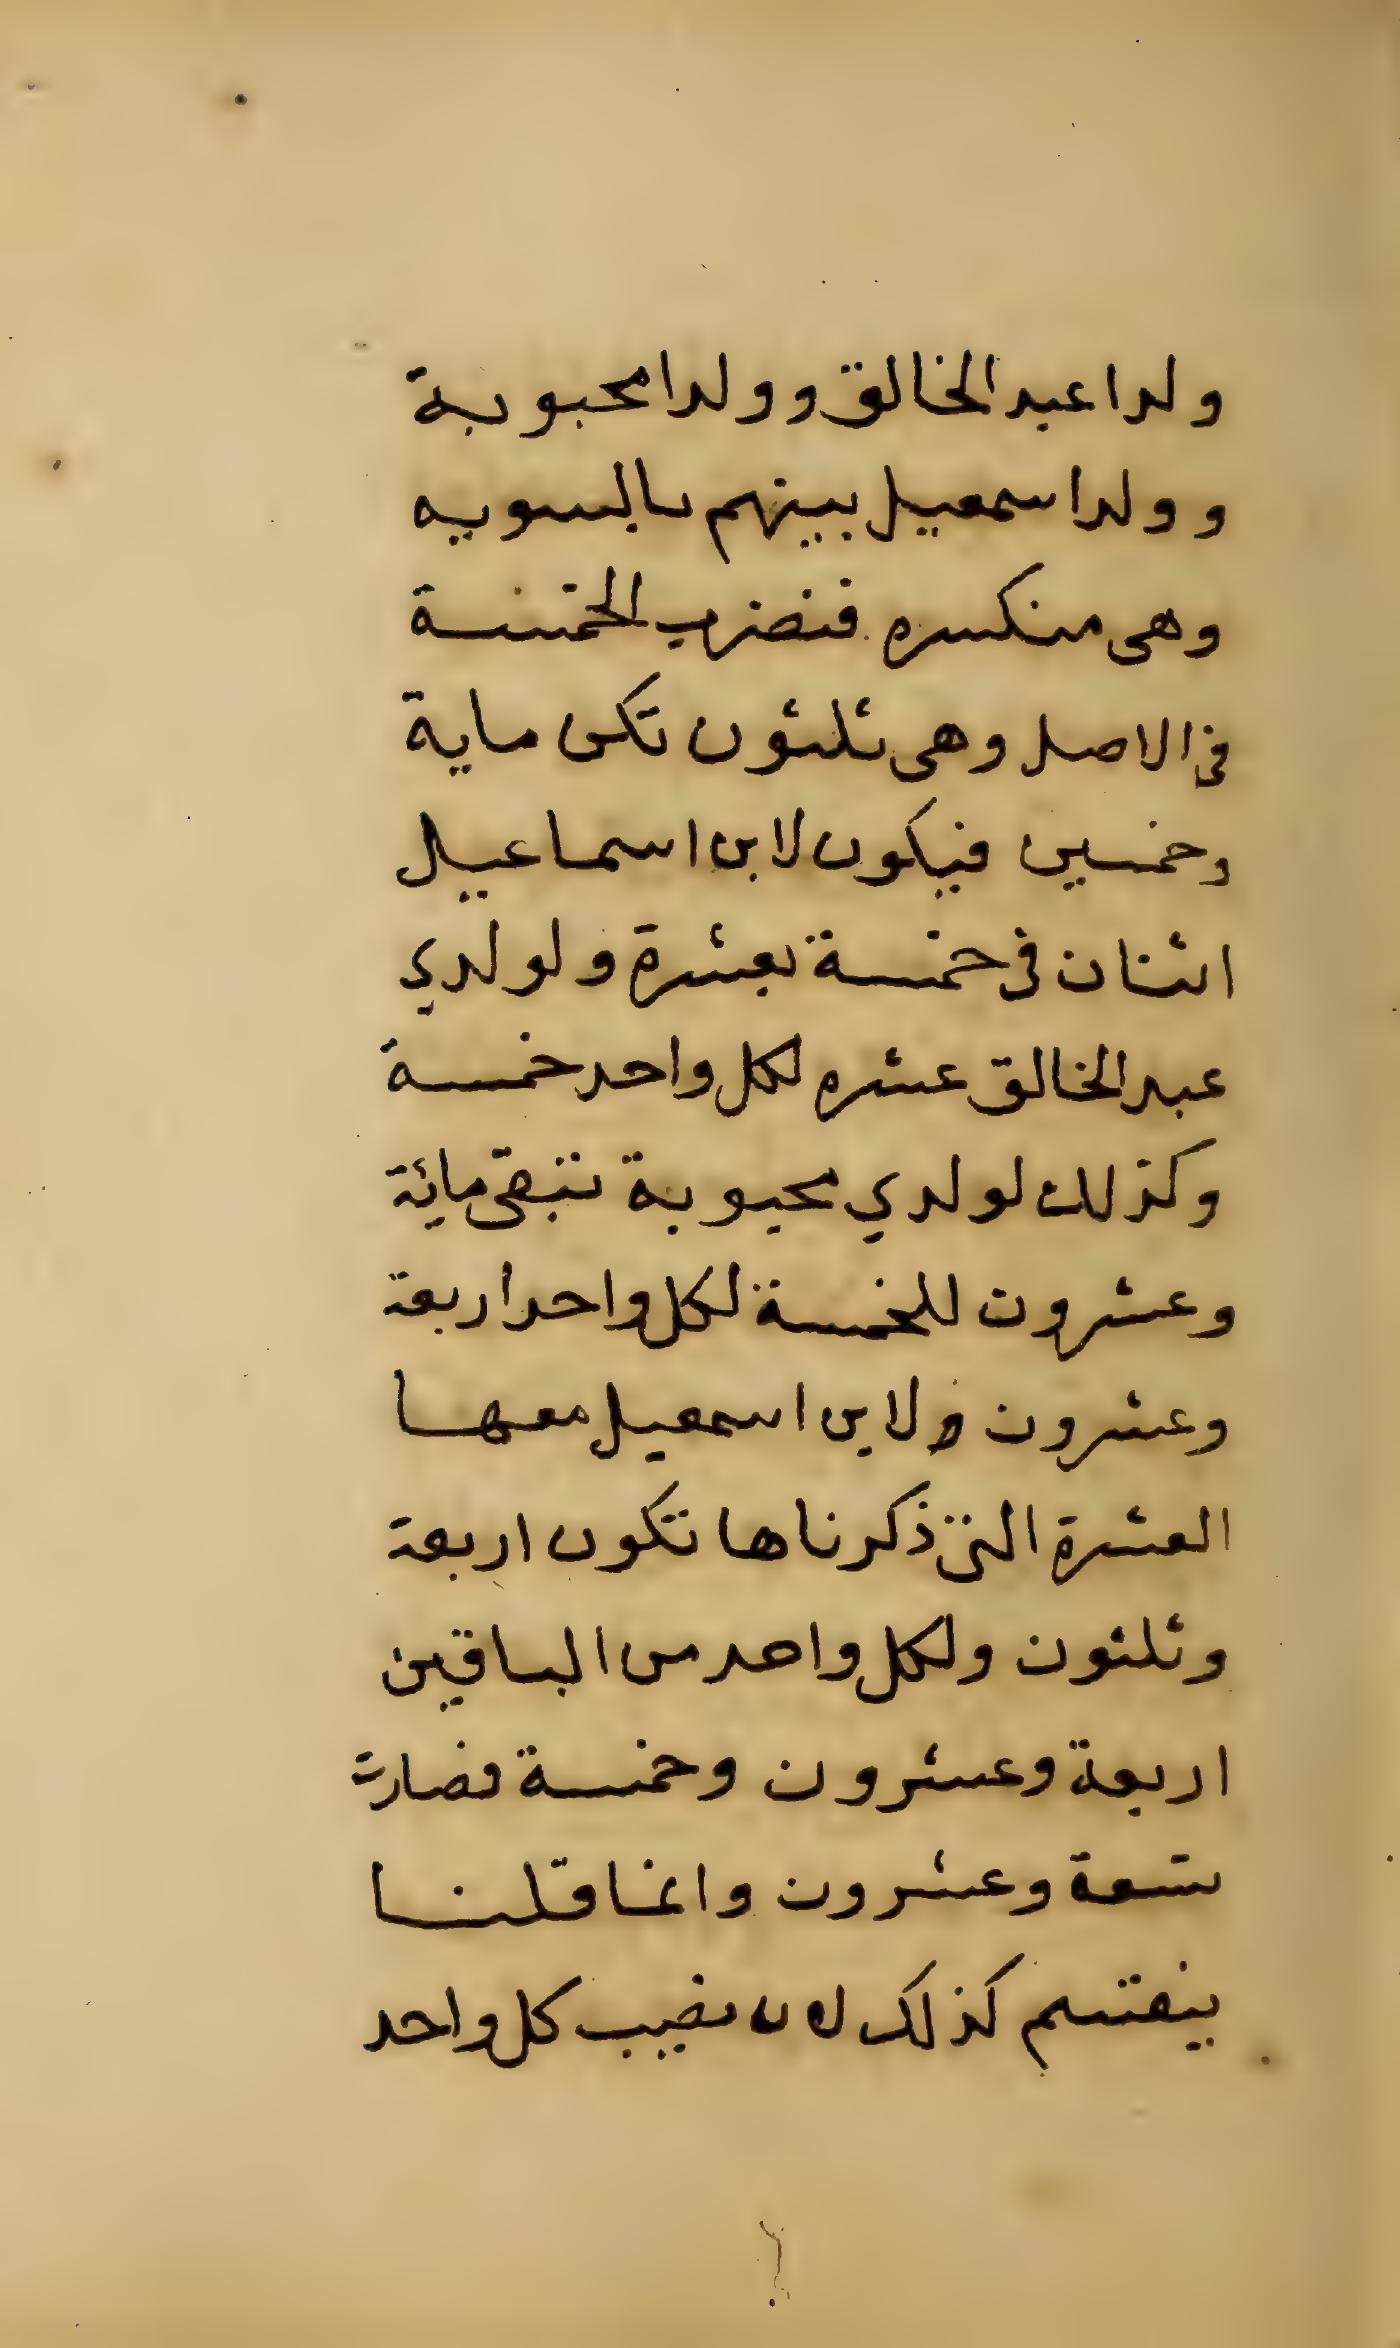 ولدا عبد الخالق وولدا محبوبة
وولدا سمعيل بينهم بالسويه
وهى منكسره فنضرب الخمسة
فى الاصل وهى ثلثون تكن ماية
وخمسين فيكون لابن اسماعيل
اثنان فى خمسة بعشرة ولولدي
عبد الخالق عشره لكل واحد خمسة
وكذلك لولدي محبوبة تتبقى مائة
وعشرون للخمسة لكل واحد اربعة
وعشرون ولابن اسمعيل معها
العشرة التى ذكرناها تكون اربعة
وثلثون ولكل واحد من الباقين
اربعة وعشرون وخمسة فصارت
تسعة وعشرون وانما قلنا
ينقسم كذلك لان نصيب كل واحد